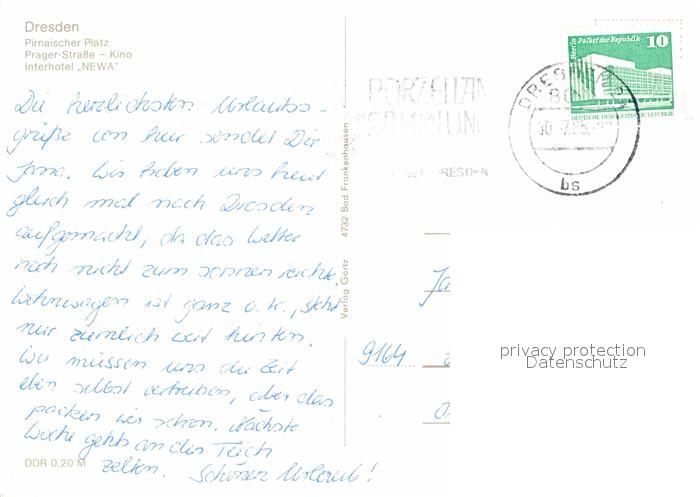 Dresden
Pirnaischer Platz
Prager-Straße – Kino
Interhotel „NEWA"
Die herzlichsten Urlaubs-
grüße von hier sendet Dir
Jana. Wir haben uns heut
gleich mal nach Dresden
aufgemacht, da das Wetter
noch nicht zum sonnen reichte.
Wohnwagen ist ganz o.k., steht
nur ziemlich weit hinten.
Wir müssen uns die Zeit
eben selbst vertreiben, aber das
packen wir schon. Nächste
Woche gehts an den Teich
zelten. Schönen Urlaub!
DDR 0,20 M
Verlag Görtz 4732 Bad Frankenhausen
PORZELLAN
DRESDEN
Berlin Palast der Republik
10
DEUTSCHE DEMOKRATISCHE REPUBLIK
DRESDEN
80
bs
Ja
9164
privacy protection
Datenschutz